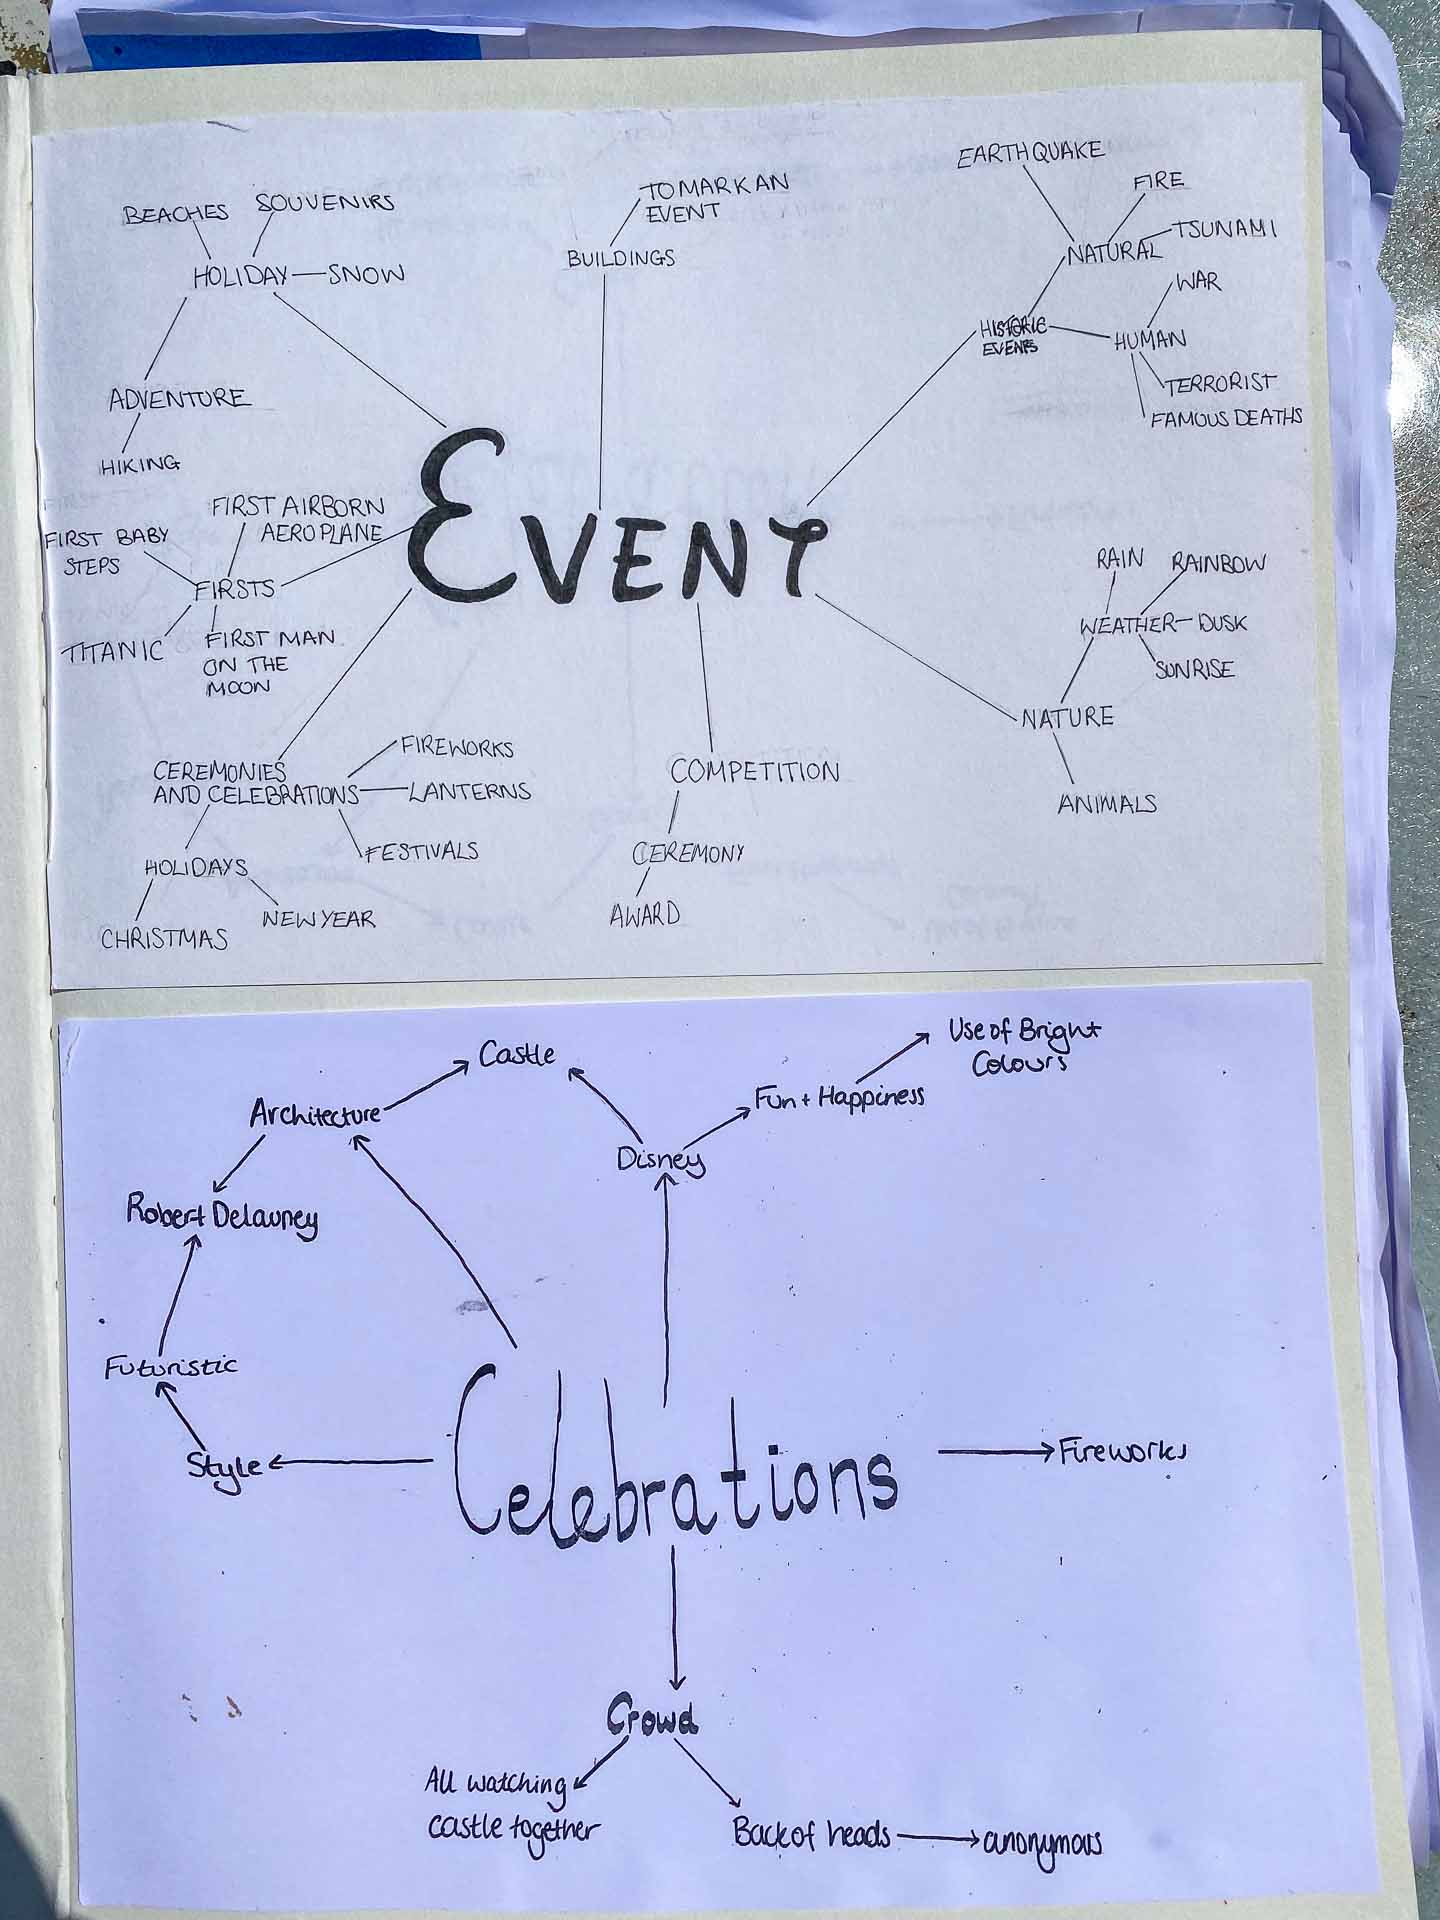 EARTHQUAKE
FIRE
TO MARK AN
EVENT
BEACHES
SOUVENIRS
TSUNAMI
NATURAL
BUILDINGS
HOLIDAY
SNOW
WAR
HISTORIC
EVENTS
HUMAN
TERRORIST
FAMOUS DEATHS
ADVENTURE
HIKING
EVENT
FIRST AIRBORN
AEROPLANE
FIRST BABY
STEPS
FIRSTS
TITANIC
FIRST MAN
ON THE
MOON
RAIN
RAINBOW
WEATHER
DUSK
SUNRISE
NATURE
ANIMALS
FIREWORKS
CEREMONIES
AND CELEBRATIONS
LANTERNS
FESTIVALS
HOLIDAYS
NEW YEAR
CHRISTMAS
COMPETITION
CEREMONY
AWARD
Use of Bright
Colours
Castle
Fun + Happiness
Architecture
Disney
Robert Delauney
Futuristic
Style
Celebrations
Fireworks
Crowd
All watching
castle together
Back of heads
anonymous